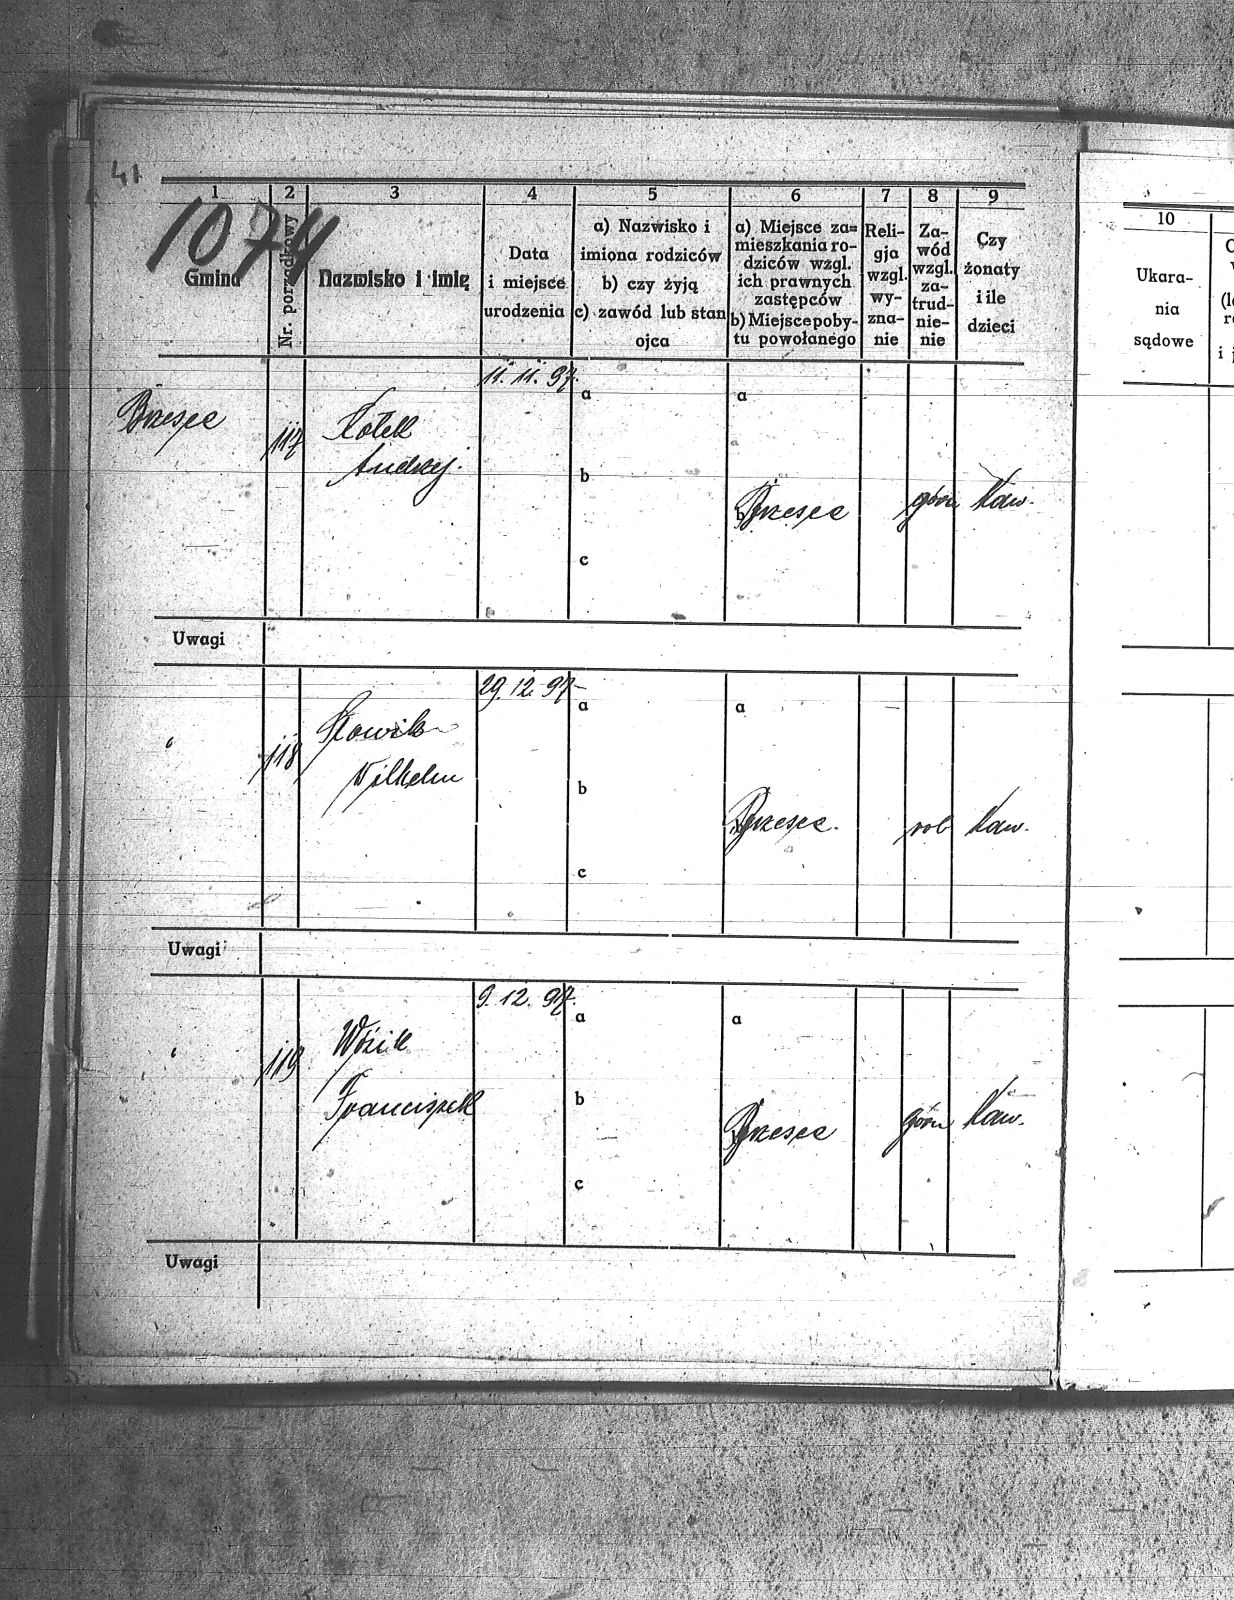 41
1 2 3 4 5 6 7 8 9
1074
Gmina
Nr. porządkowy
Nazwisko i imię
Data
i miejsce
urodzenia
a) Nazwisko i
imiona rodziców
b) czy żyją
c) zawód lub stan
ojca
a) Miejsce za=
mieszkania ro-
dziców wzgl.
ich prawnych
zastępców
b) Miejsce poby-
tu powołanego
Reli-
gja
wzgl.
wy-
zna-
nie
Za-
wód
wzgl.
za-
trud-
nie-
nie
Czy
żonaty
i ile
dzieci
10
Ukara-
nia
sądowe
Brzesce
117
Kołek
Andrzej.
11. 11. 97.
a
b
c
a
b
Brzesce
górn
kaw.
Uwagi
"
118
Wilhelm
29. 12. 97
a
b
c
a
b
Brzesce.
rob
kaw.
Uwagi
"
119
Wózik
Franciszek
9. 12. 97.
a
b
c
a
b
Brzesce
górn
kaw.
Uwagi